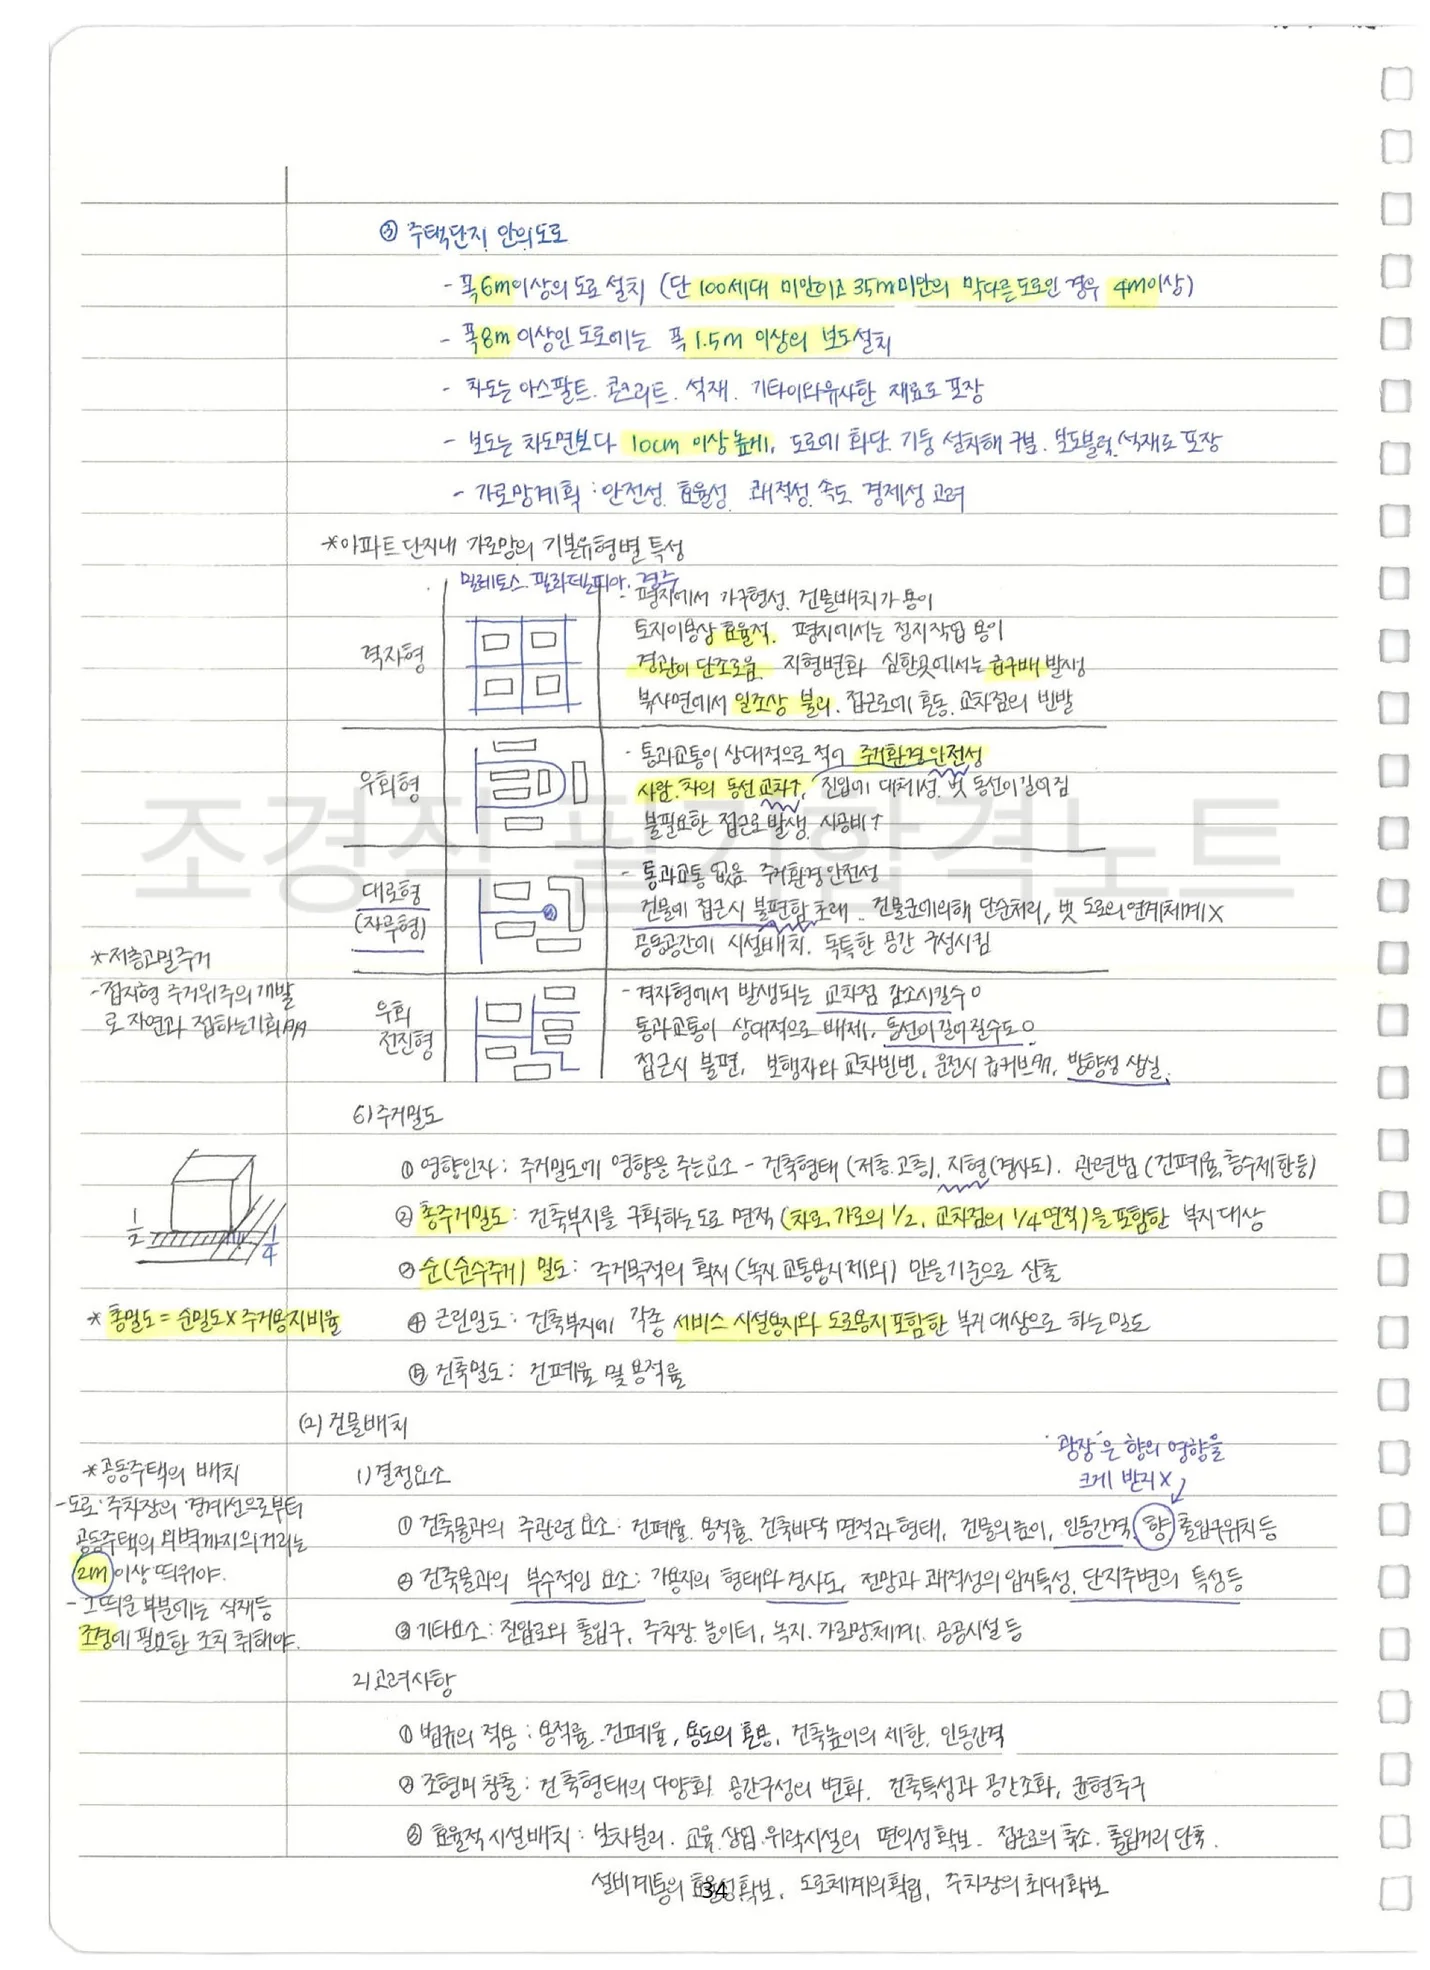 ③ 주택단지 안의 도로
- 폭 6m이상의 도로 설치 (단 100세대 미만이고 35m미만의 막다른 도로인 경우 4m이상)
- 폭 8m 이상인 도로에는 폭 1.5m 이상의 보도 설치
- 차도는 아스팔트. 콘크리트. 석재. 기타이와유사한 재료로 포장
- 보도는 차도면보다 10cm 이상 높게, 도로에 화단. 기둥 설치해 구분. 보도블럭. 석재로 포장
- 가로망계획 : 안전성. 효율성. 쾌적성. 속도. 경제성 고려
*아파트 단지내 가로망의 기본유형별 특성
밀레토스. 필라델피아. 경주
격자형
- 평지에서 가구형성. 건물배치가 용이
토지이용상 효율적. 평지에서는 정지작업 용이
경관이 단조로움. 지형변화 심한곳에서는 급구배 발생
북사면에서 일조상 불리. 접근로에 혼동. 교차점의 빈발
우회형
- 통과교통이 상대적으로 적어 주거환경 안전성
사람. 차의 동선 교차↑, 진입이 대체성. 및 동선이 길어짐
불필요한 접근로 발생. 시공비↑
대로형
(자루형)
- 통과교통 없음 주거환경 안전성
건물에 접근시 불편함 초래. 건물군에의해 단순처리, 및 도로의 연계체계 X
공동공간에 시설배치. 독특한 공간 구성시킴
우회
전진형
- 격자형에서 발생되는 교차점 감소시킬수 O
통과교통이 상대적으로 배제, 동선이 길어질수도 O
접근시 불편, 보행자와 교차빈번, 운전시 급커브多, 방향성 상실.
*저층고밀주거
- 접지형 주거위주의 개발
로 자연과 접하는기회↗↗
6) 주거밀도
① 영향인자 : 주거밀도에 영향을 주는요소 - 건축형태 (저층. 고층), 지형 (경사도). 관련법 (건폐율, 층수제한등)
② 총주거밀도 : 건축부지를 구획하는도로 면적 (차로, 가로의 1/2, 교차점의 1/4면적)을 포함한 부지 대상
③ 순(순수주거) 밀도 : 주거목적의 획지 (녹지. 교통용지 제외) 만을 기준으로 산출
1/2
1/4
* 총밀도 = 순밀도 X 주거용지비율
④ 근린밀도 : 건축부지에 각종 서비스 시설용지와 도로용지 포함한 부지 대상으로 하는 밀도
⑤ 건축밀도 : 건폐율 및 용적률
(2) 건물배치
'광장'은 향의 영향을
크게 받지 X
1) 결정요소
① 건축물과의 주관련 요소 : 건폐율. 용적률. 건축바닥 면적과 형태, 건물의 높이, 인동간격, 향, 출입구위치 등
② 건축물과의 부수적인 요소 : 가용지의 형태와 경사도, 전망과 쾌적성의 입지특성, 단지주변의 특성등
③ 기타요소 : 진입로와 출입구, 주차장. 놀이터, 녹지. 가로망체계. 공공시설 등
*공동주택의 배치
- 도로·주차장의 경계선으로부터
공동주택의 외벽까지의거리는
2m 이상 띄워야.
- 그 띄운 부분에는 식재등
조경에 필요한 조치 취해야.
2) 고려사항
① 법규의 적용 : 용적률. 건폐율, 용도의 혼용, 건축높이의 제한, 인동간격
② 조형미 창출 : 건축형태의 다양화. 공간구성의 변화. 건축특성과 공간조화, 균형추구
③ 효율적 시설배치 : 보차분리. 교육. 상업. 위락시설의 편익성 확보. 접근로의 축소. 출입거리 단축.
설비계통의 효율성확보, 도로체계의 확립, 주차장의 최대확보
34
조경직 필기합격노트